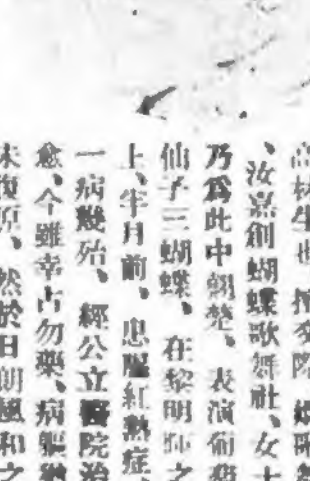 高材生也
、汝嘉創蝴蝶歌舞社、女士
乃爲此中翹楚、表演葡萄
仙子三蝴蝶、在黎明𤾀之
上、半月前、患腥紅熱症、
一病幾殆、經公立醫院治
愈、今雖幸占勿藥、病軀猶
未復原、然於日朗楓和之